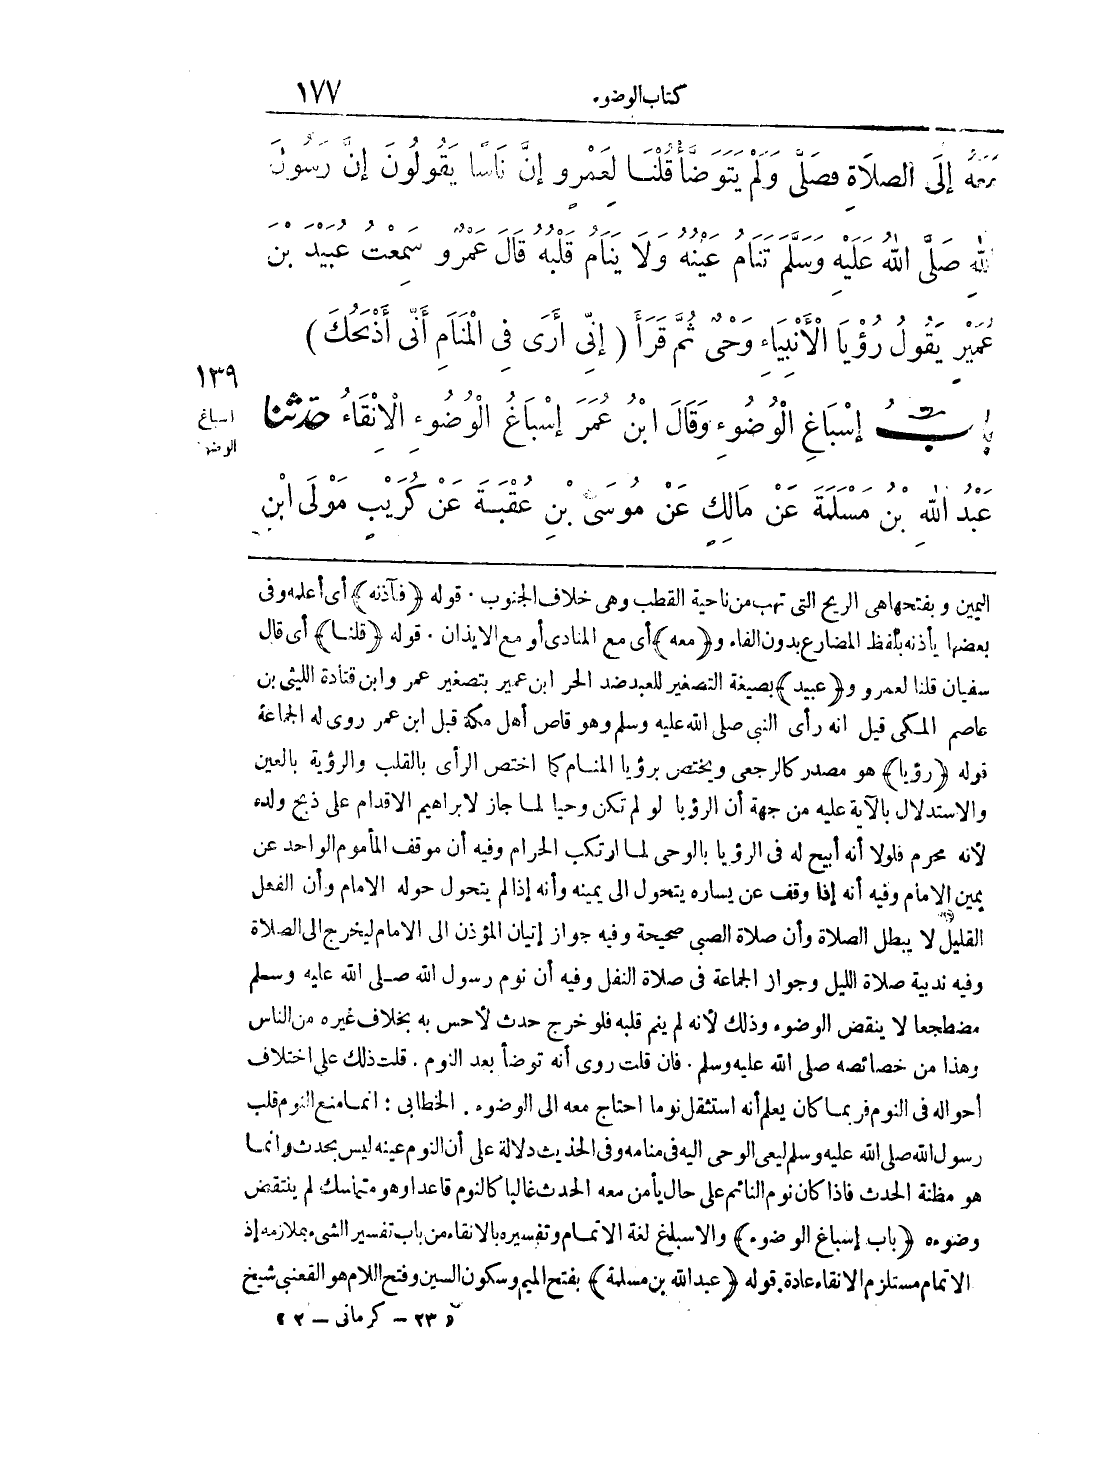 كتاب الوضوء ١٧٧
مَعَهُ إِلَى الصلَاةِ فَصَلَّى وَلَمْ يَتَوَضَّأْ قُلْنَا لِعَمْرٍو إِنَّ نَاسًا يَقُولُونَ إِنَّ رَسُولَ
اللهِ صَلَّى اللهُ عَلَيْهِ وَسَلَّمَ تَنَامُ عَيْنُهُ وَلَا يَنَامُ قَلْبُهُ قَالَ عَمْرٌو سَمِعْتُ عُبَيْدَ بْنَ
عُمَيْرٍ يَقُولُ رُؤْيَا الْأَنْبِيَاءِ وَحْىٌ ثُمَّ قَرَأَ ( إِنِّى أَرَى فِى الْمَنَامِ أَنِّى أَذْبَحُكَ )
١٣٩
اسباغ
الوضوء
بَابُ إِسْبَاغِ الْوُضُوءِ وَقَالَ ابْنُ عُمَرَ إِسْبَاغُ الْوُضُوءِ الْإِنْقَاءُ حَدَّثَنَا
عَبْدُ اللهِ بْنُ مَسْلَمَةَ عَنْ مَالِكٍ عَنْ مُوسَى بْنِ عُقْبَةَ عَنْ كُرَيْبٍ مَوْلَى ابْنِ
اليمين وبفتحها هى الريح التى تهب من ناحية القطب وهى خلاف الجنوب . قوله ﴿فآذنه﴾ أى أعلمه وفى
بعضها يأذنه بلفظ المضارع بدون الفاء و﴿معه﴾ أى مع المنادى أو مع الايذان . قوله ﴿قلنا﴾ أى قال
سفيان قلنا لعمرو و﴿عبيد﴾ بصيغة التصغير للعبد ضد الحر ابن عمير بتصغير عمر وابن قتادة الليثى بن
عاصم المكى قيل انه رأى النبى صلى الله عليه وسلم وهو قاص أهل مكة قبل ابن عمر روى له الجماعة
قوله ﴿رؤيا﴾ هو مصدر كالرجعى ويختص برؤيا المنام كما اختص الرأى بالقلب والرؤية بالعين
والاستدلال بالآية عليه من جهة أن الرؤيا لو لم تكن وحيا لما جاز لابراهيم الاقدام على ذبح ولده
لأنه محرم فلولا أنه أبيح له فى الرؤيا بالوحى لما ارتكب الحرام وفيه أن موقف المأموم الواحد عن
يمين الامام وفيه أنه إذا وقف عن يساره يتحول الى يمينه وأنه إذا لم يتحول حوله الامام وأن الفعل
القليل لا يبطل الصلاة وأن صلاة الصبى صحيحة وفيه جواز إتيان المؤذن الى الامام ليخرج الى الصلاة
وفيه ندبية صلاة الليل وجواز الجماعة فى صلاة النفل وفيه أن نوم رسول الله صلى الله عليه وسلم
مضطجعا لا ينقض الوضوء وذلك لأنه لم ينم قلبه فلو خرج حدث لأحس به بخلاف غيره من الناس
وهذا من خصائصه صلى الله عليه وسلم . فان قلت روى أنه توضأ بعد النوم . قلت ذلك على اختلاف
أحواله فى النوم فربما كان يعلم أنه استثقل نوما احتاج معه الى الوضوء . الخطابى : انما منع النوم قلب
رسول الله صلى الله عليه وسلم ليعى الوحى اليه فى منامه وفى الحديث دلالة على أن النوم عينه ليس بحدث وانما
هو مظنة الحدث فاذا كان نوم النائم على حال يأمن معه الحدث غالبا كالنوم قاعدا وهو متماسك لم ينتقض
وضوءه ﴿باب إسباغ الوضوء﴾ والاسباغ لغة الاتمام وتفسيره بالانقاء من باب تفسير الشىء بملازمه إذ
الاتمام مستلزم الانقاء عادة. قوله ﴿عبد الله بن مسلمة﴾ بفتح الميم وسكون السين وفتح اللام هو القعنبى شيخ
« ٢٣ - كرمانى - ٢ »